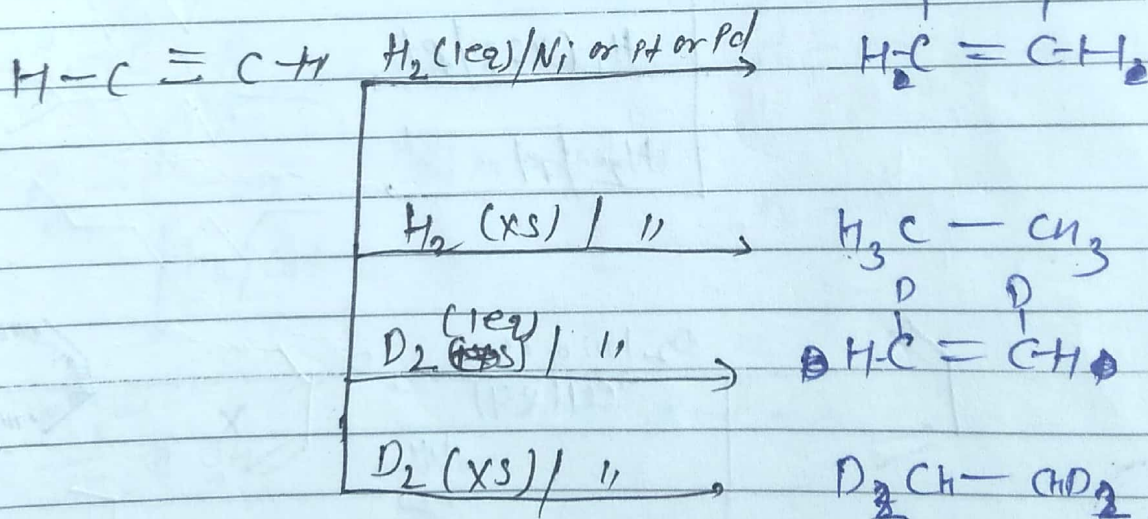 H-C ≡ C-H H₂(1eq)/Ni or Pt or Pd H₂C = CH₂
H₂ (xs) / " H₃C — CH₃
D D
D₂ (1eq) / " H-C = C-H
D₂ (xs) / " D₂CH — CHD₂